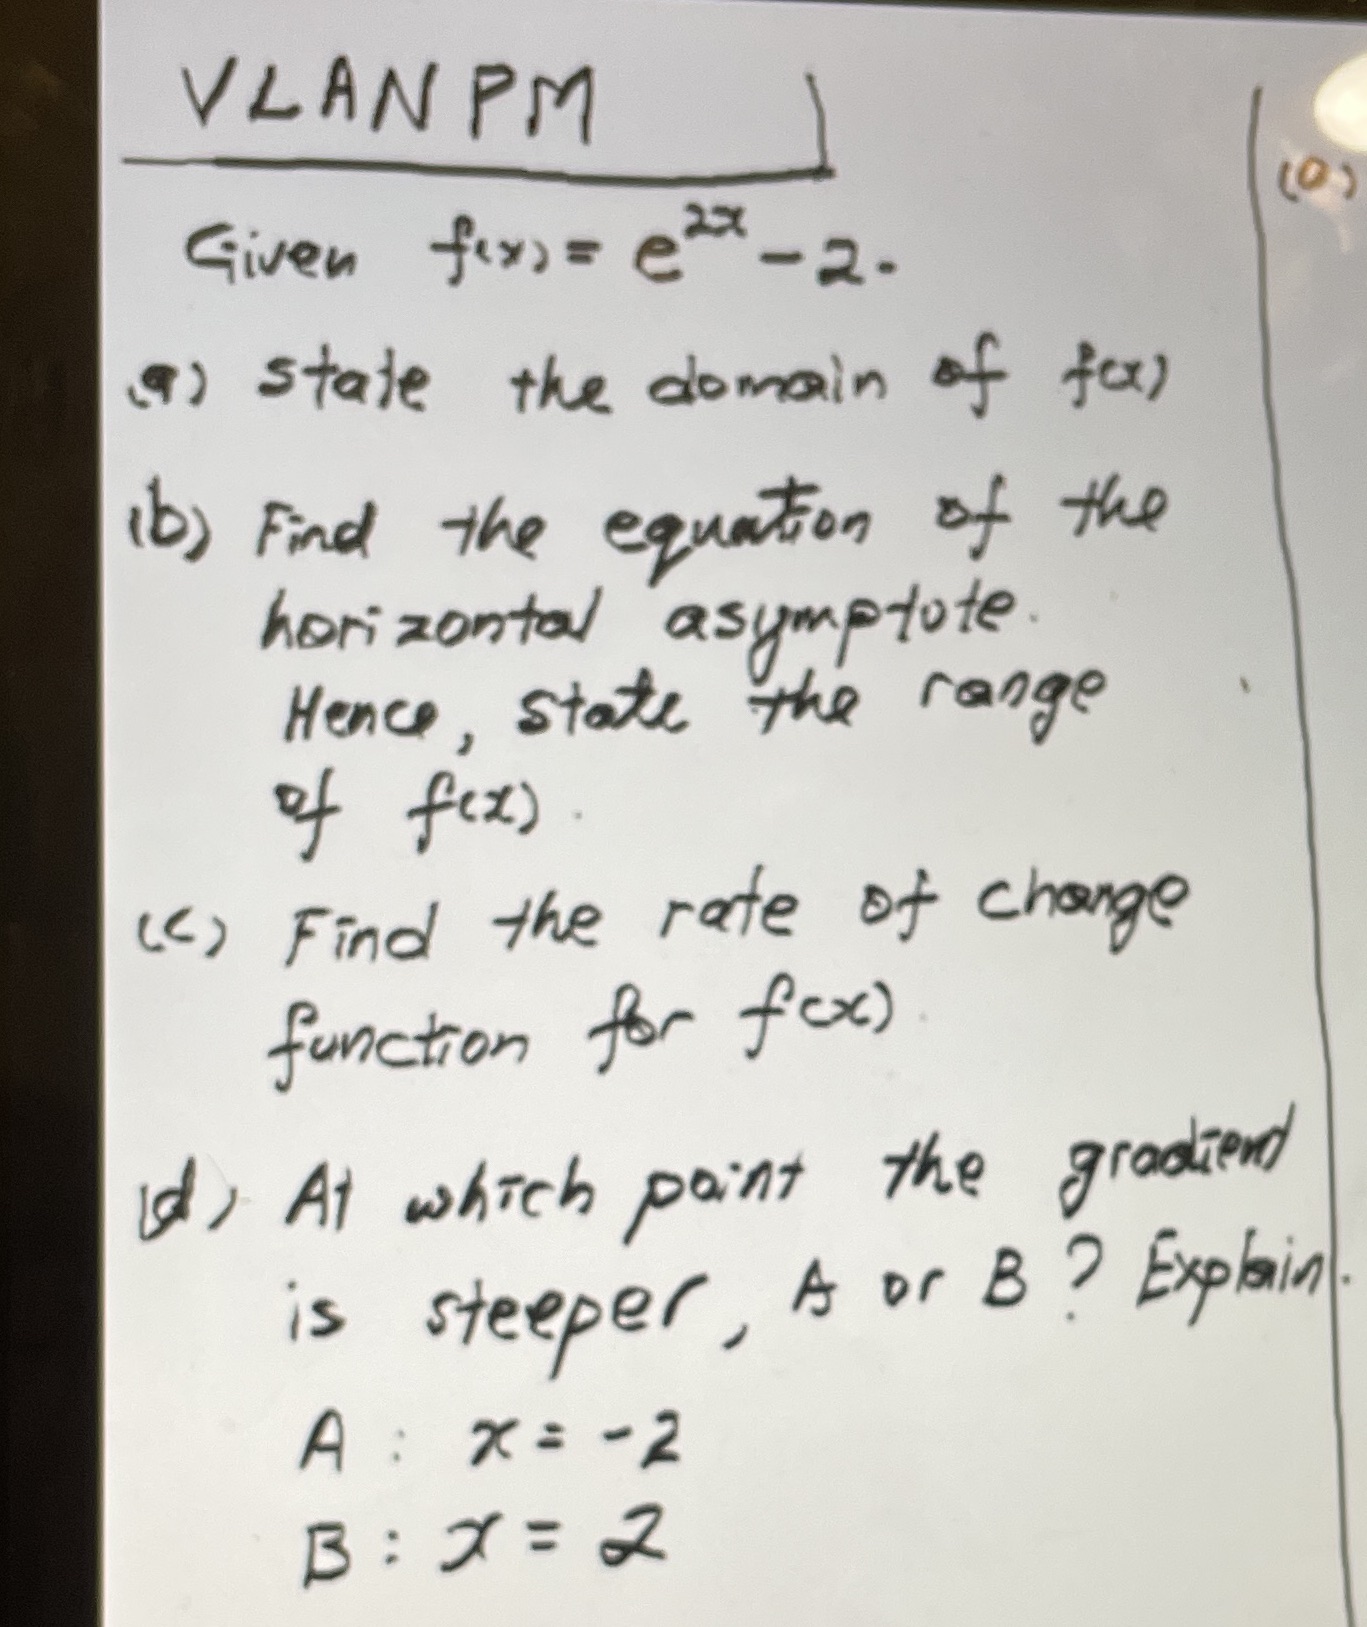 VLANPM
Given f(x) = e^{2x} - 2.
(a) state the domain of f(x)
(b) Find the equation of the
horizontal asymptote.
Hence, state the range
of f(x).
(c) Find the rate of change
function for f(x).
(d) At which point the gradient
is steeper, A or B? Explain.
A : x = -2
B : x = 2
(a)